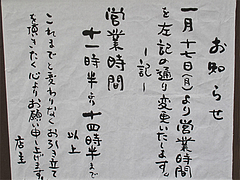 お知らせ
一月十七日(月)より営業時間
を左記の通り変更いたします。
ー記ー
営業時間
十一時半より十四時半まで
以上
これまでと変わりなくお引き立て
を頂きたく心よりお願い申し上げます。
店主